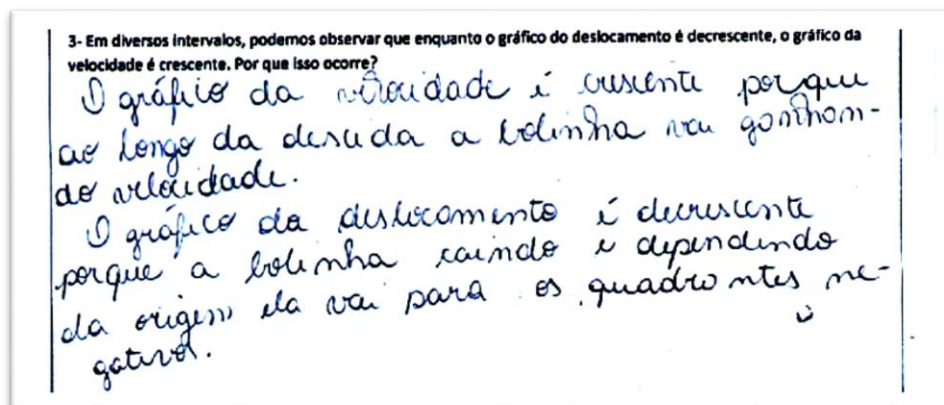 3- Em diversos intervalos, podemos observar que enquanto o gráfico do deslocamento é decrescente, o gráfico da
velocidade é crescente. Por que isso ocorre?
O gráfico da velocidade é crescente porque
ao longo da descida a bolinha vai ganhan-
do velocidade.
O gráfico da deslocamento é decrescente
porque a bolinha caindo e dependendo
da origem ela vai para os quadrantes ne-
gativos.